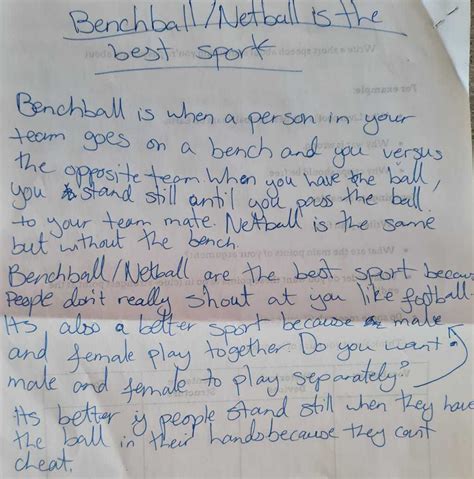 Benchball/Netball is the
best sport
Benchball is when a person in your
team goes on a bench and you versus
the opposite team. When you have the ball,
you stand still until you pass the ball
to your team mate. Netball is the same
but without the bench.
Benchball/Netball are the best sport because
People don't really shout at you like football.
Its also a better sport because male
and female play together. Do you want
male and female to play separately?
Its better if people stand still when they have
the ball in their hands because they cant
cheat.